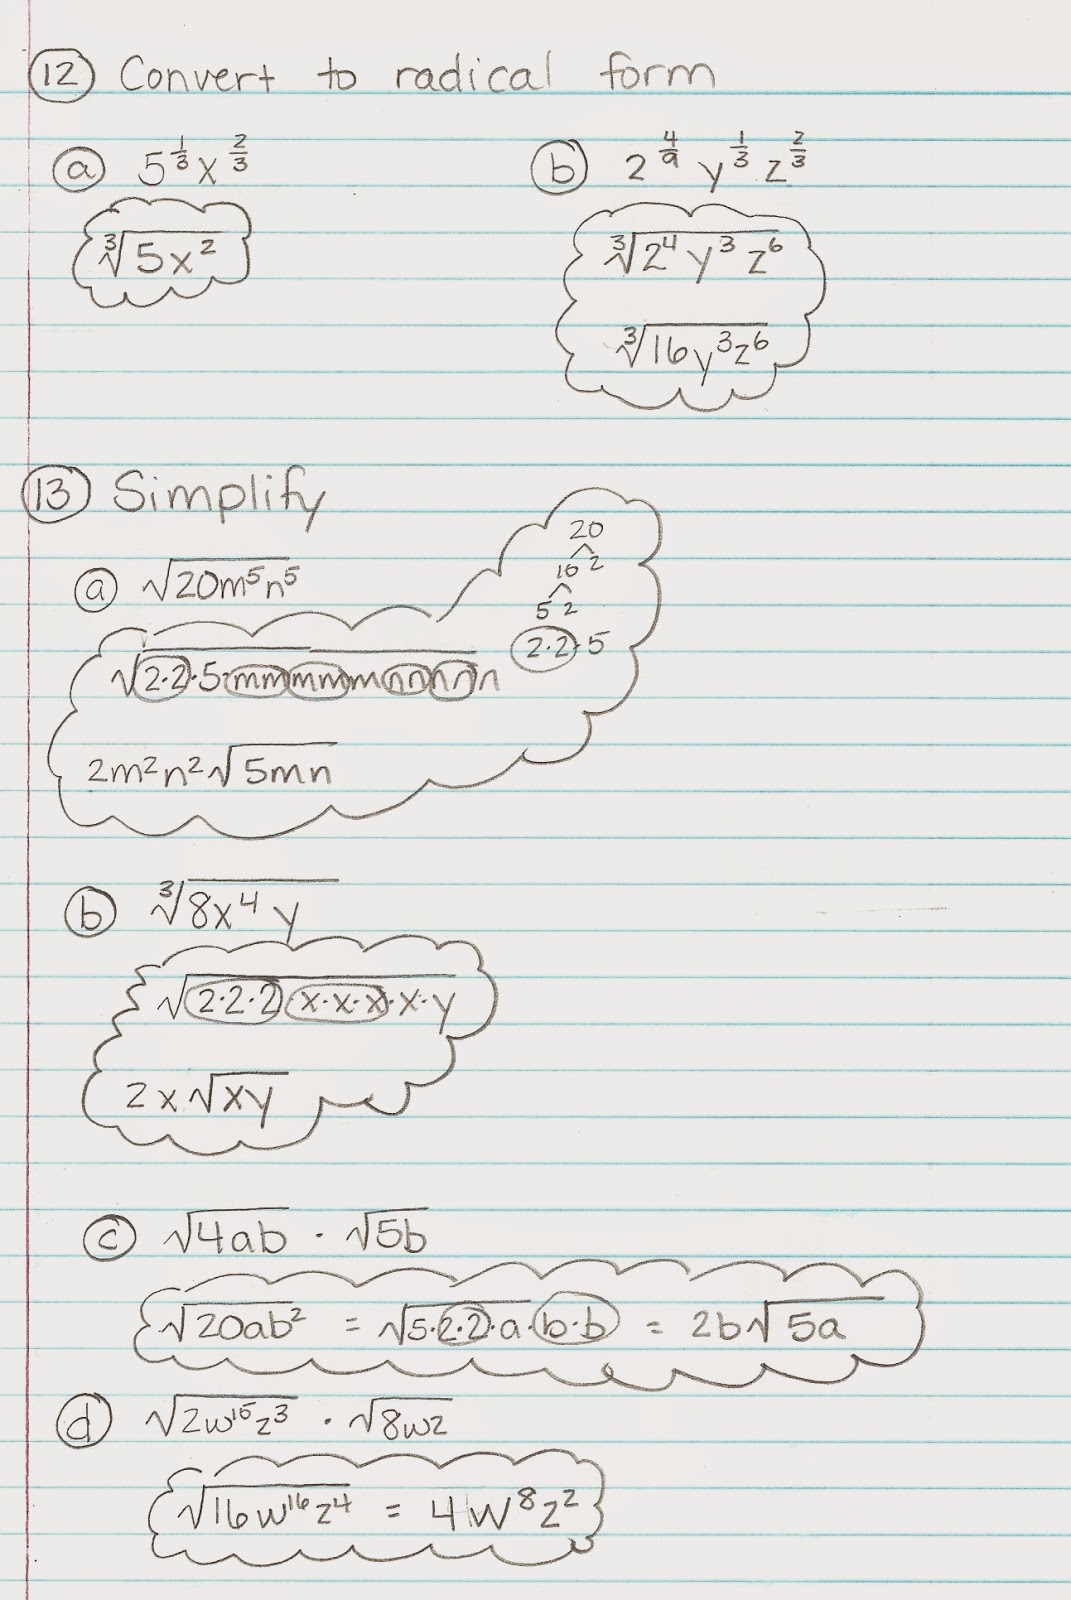 12 Convert to radical form
a 5^(1/3) x^(2/3)
∛(5x²)
b 2^(4/9) y^(1/3) z^(2/3)
∛(2⁴y³z⁶)
∛(16y³z⁶)
13 Simplify
a √(20m⁵n⁵)
20
10 2
5 2
2·2·5
√(2·2·5·mmmmmnnnnn)
2m²n²√(5mn)
b ∛(8x⁴y)
√(2·2·2 x·x·x·x·y)
2x√(xy)
c √(4ab) · √(5b)
√(20ab²) = √(5·2·2·a·b·b) = 2b√(5a)
d √(2w¹⁵z³) · √(8wz)
√(16w¹⁶z⁴) = 4w⁸z²